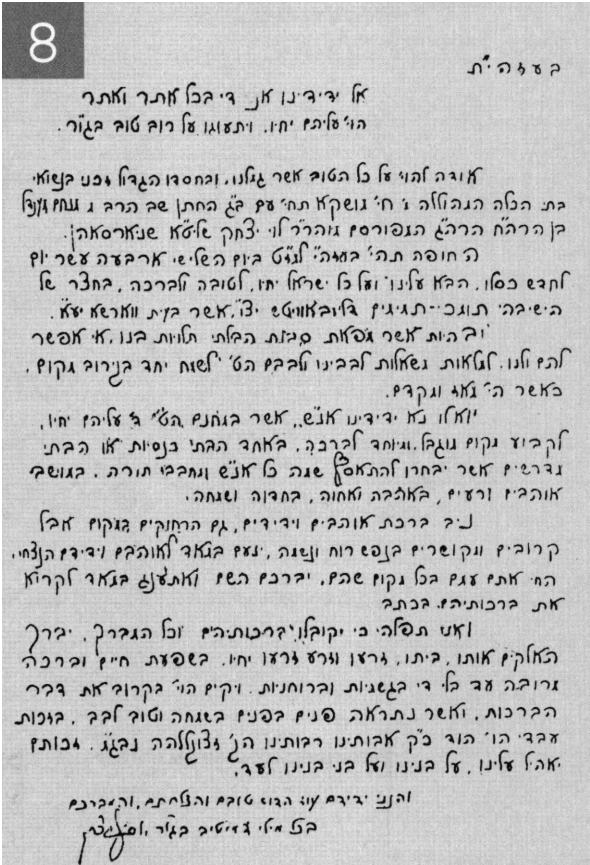 8
בעזהי"ת
אל ידידינו אנ די בכל אתר ואתר
הוי' עליהם יחיו. ויתענגו על רוב טוב בגו"ר.
אודה להוי' על כל הטוב אשר גמלנו, ובחסדו הגדול זכני בנשואי
בתי הכלה המהוללה מ' חי' מושקא תחי' עם ב"ג החתן שב הרב מ' מנחם מענדל
בן הרה"ח הרה"ג המפורסם מוהר"ר לוי יצחק שליט"א שניארסאהן.
החופה תהי' בעזה"י למז"ט ביום השלישי ארבעה עשר יום
לחדש כסלו, הבא עלינו ועל כל ישראל יחיו, לטובה ולברכה, בחצר של
הישיבה תומכי-תמימים דליובאוויטש יצ"ו, אשר בק"ק ווארשא יע"א.
ובהיות אשר מפאת סבות הבלתי תלויות בנו, אי אפשר
להם ולנו, למלאות משאלות לבבינו ולבבם הט' לשמח יחד בקירוב מקום,
כאשר הי' מאז ומקדם.
יואלו נא ידידינו אנ"ש, אשר במחנם הט' ד' עליהם יחיו,
לקבוע מקום מוגבל, ומיוחד לברכה, באחד הבתי כנסיות או הבתי
מדרשים אשר יבחרו להתאסף שמה כל אנ"ש ומחבבי תורה, במושב
אוהבים ורעים, באהבה ואחוה, בחדוה ושמחה.
ניב ברכת אוהבים וידידים, גם הרחוקים במקום אבל
קרובים ומקושרים בנפש רוח ונשמה, ינעם במאד לאוהבם וידידם הנצחי,
החי אתם עמם בכל מקום שהם, יברכם השם ואתענג במאד לקרוא
את ברכותיהם בכתב
ואני תפלה כי יקובלו ברכותיהם וכל המברך, יברך
האלקים אותו, ביתו, זרעו וזרע זרעו יחיו, בשפעת חיים וברכה
מרובה עד בלי די בגשמיות וברוחניות. ויקים הוי' בקרוב את דבר
הברכות, ואשר נתראה פנים בפנים בשמחה וטוב לבב, בזכות
עבדי הוי' הוד כ"ק אבותינו רבותינו הק' זצוקללה"ה נבג"מ. זכותם
יאהיל עלינו, על בנינו ועל בני בנינו לעד,
והנני ידידם עוז הדו"ש טובם והצלחתם, והמברכם
בכל מילי דמיטיב בגו"ר,